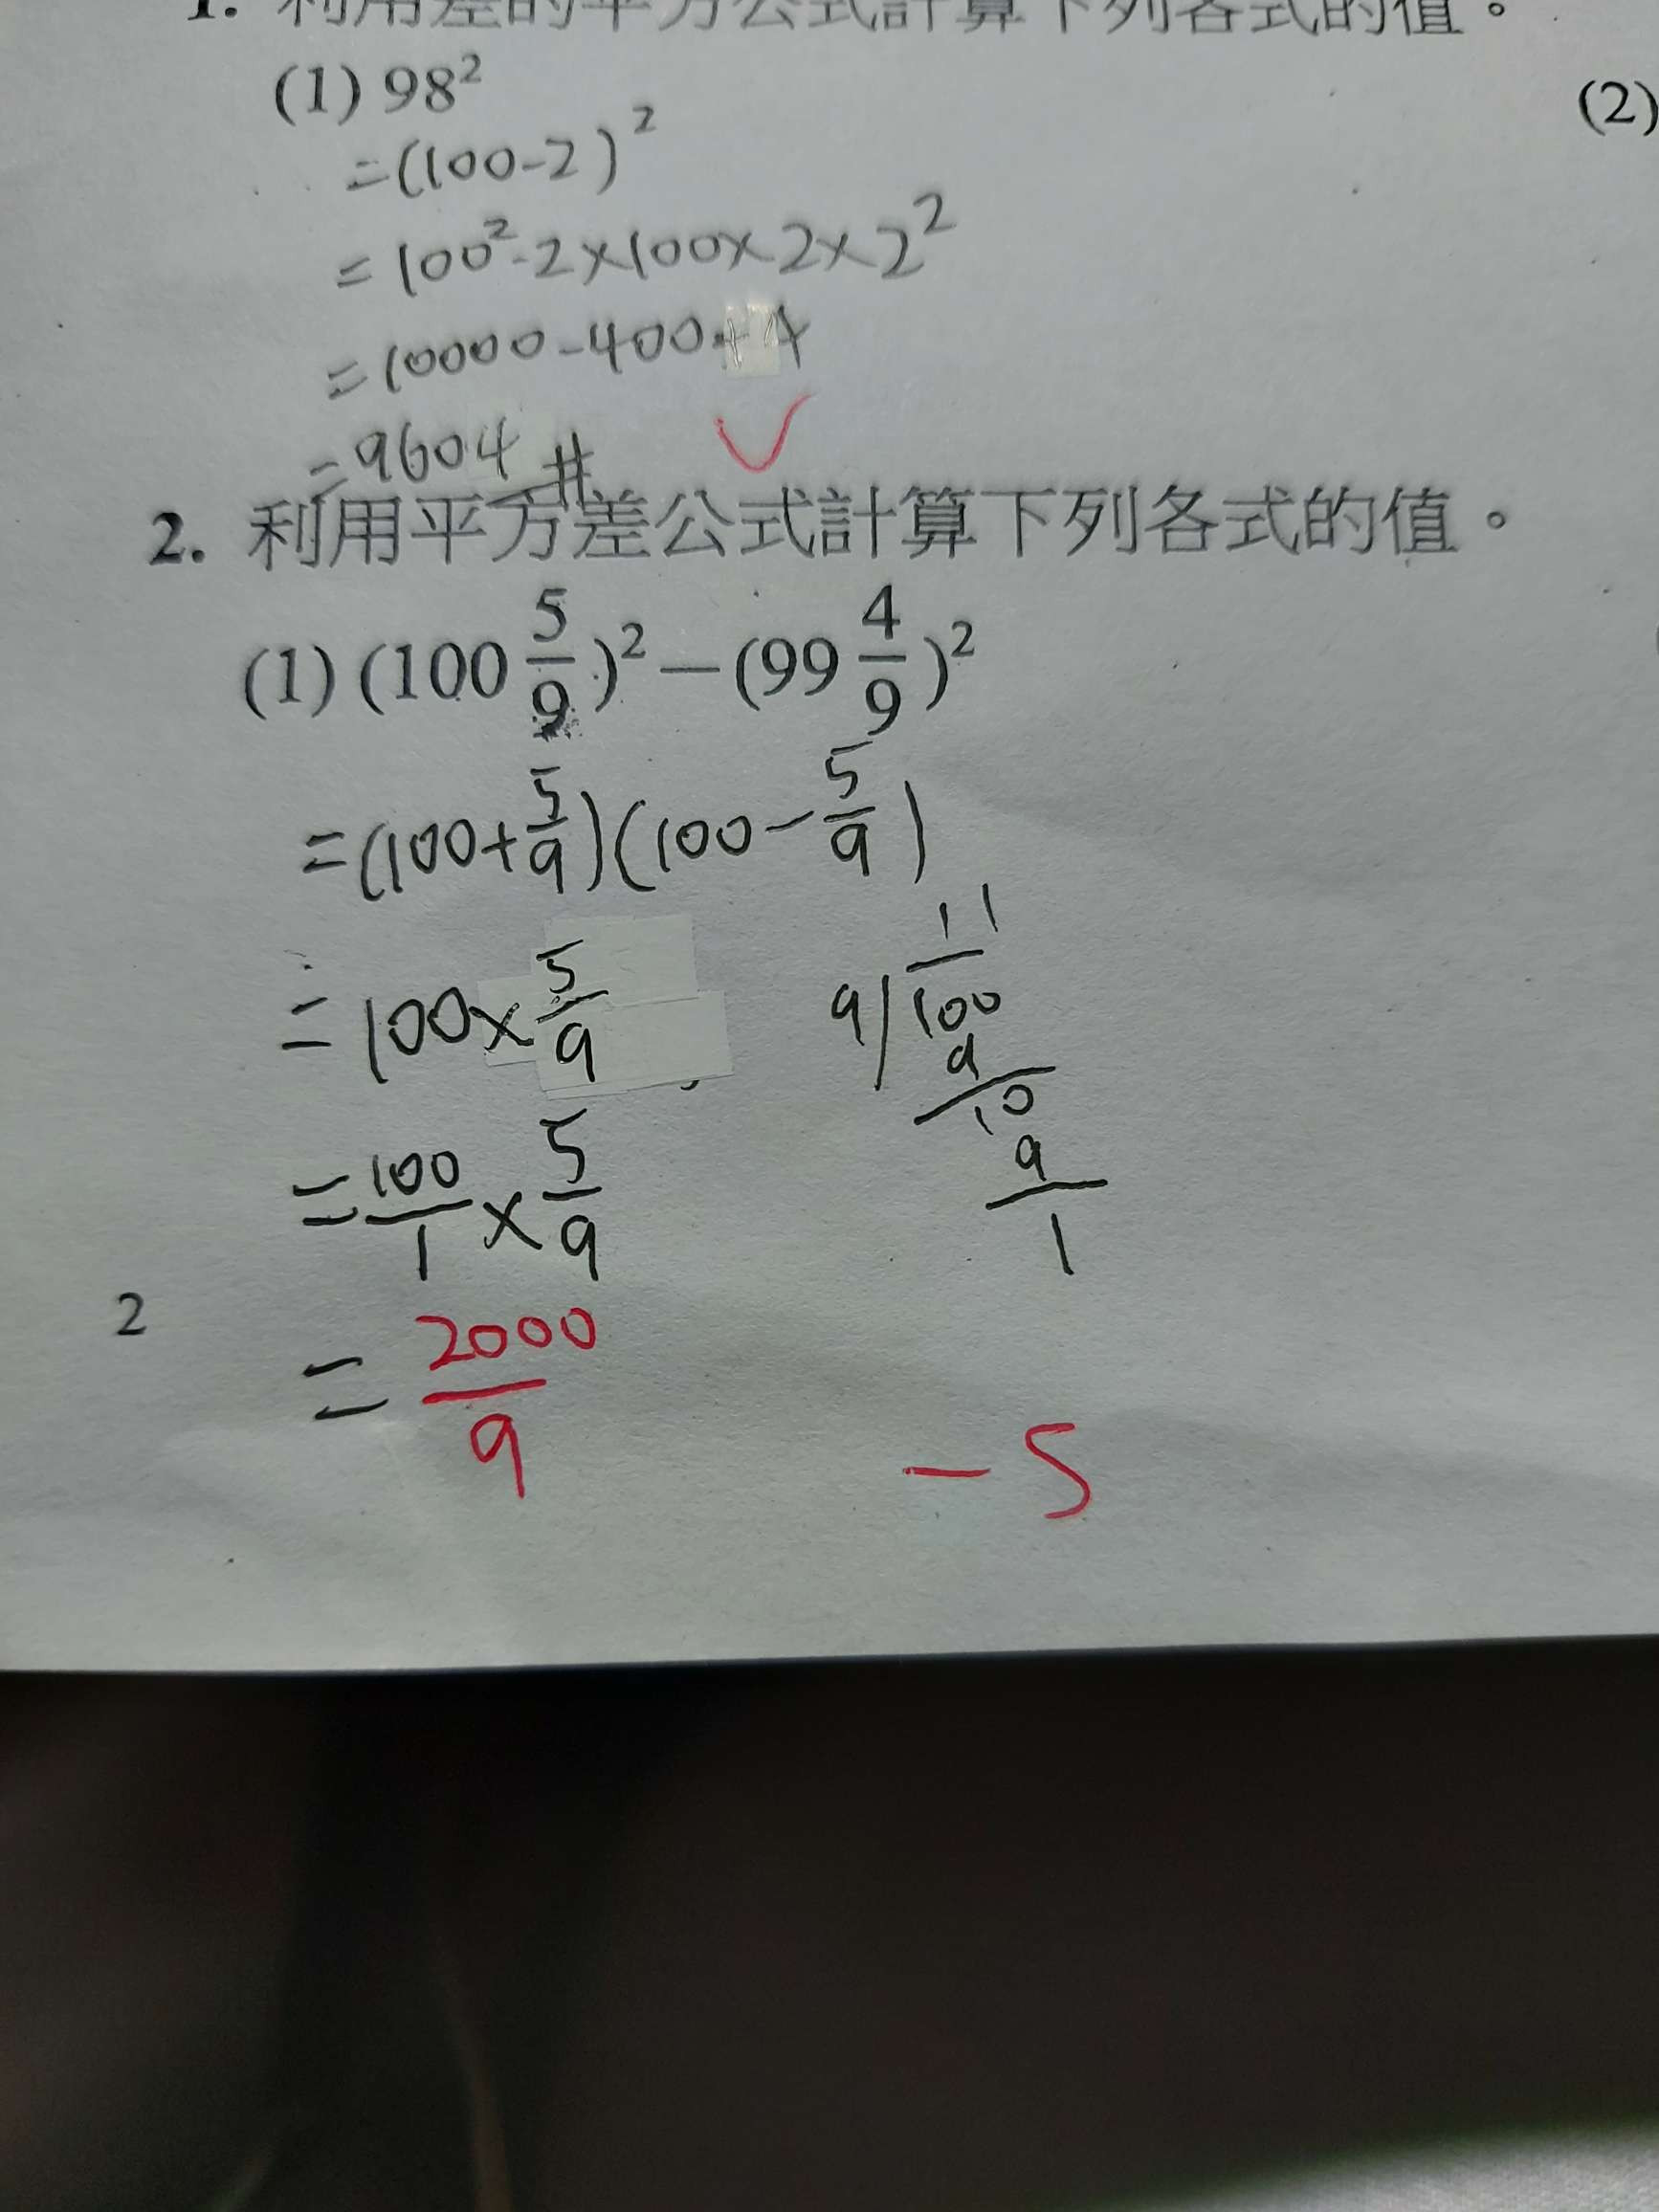 1. 利用差的平方公式計算下列各式的值。
(1) 98² (2)
=(100-2)²
=100²-2×100×2×2²
=10000-400+4
=9604 #
2. 利用平方差公式計算下列各式的值。
(1) (100 5/9)² − (99 4/9)²
=(100+5/9)(100-5/9)
=100×5/9
=100/1×5/9
=2000/9
11
9/100
9
10
9
1
-5
2